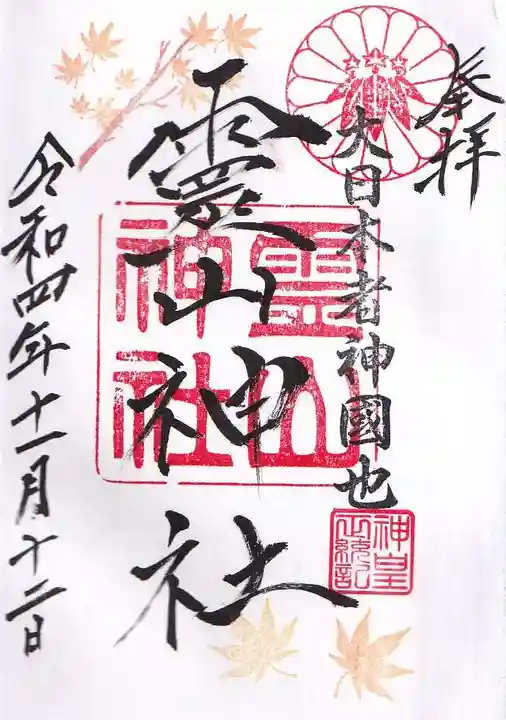 奉拝
大日本者神國也
神皇正統記
靈山神社
靈山神社
令和四年十一月十二日